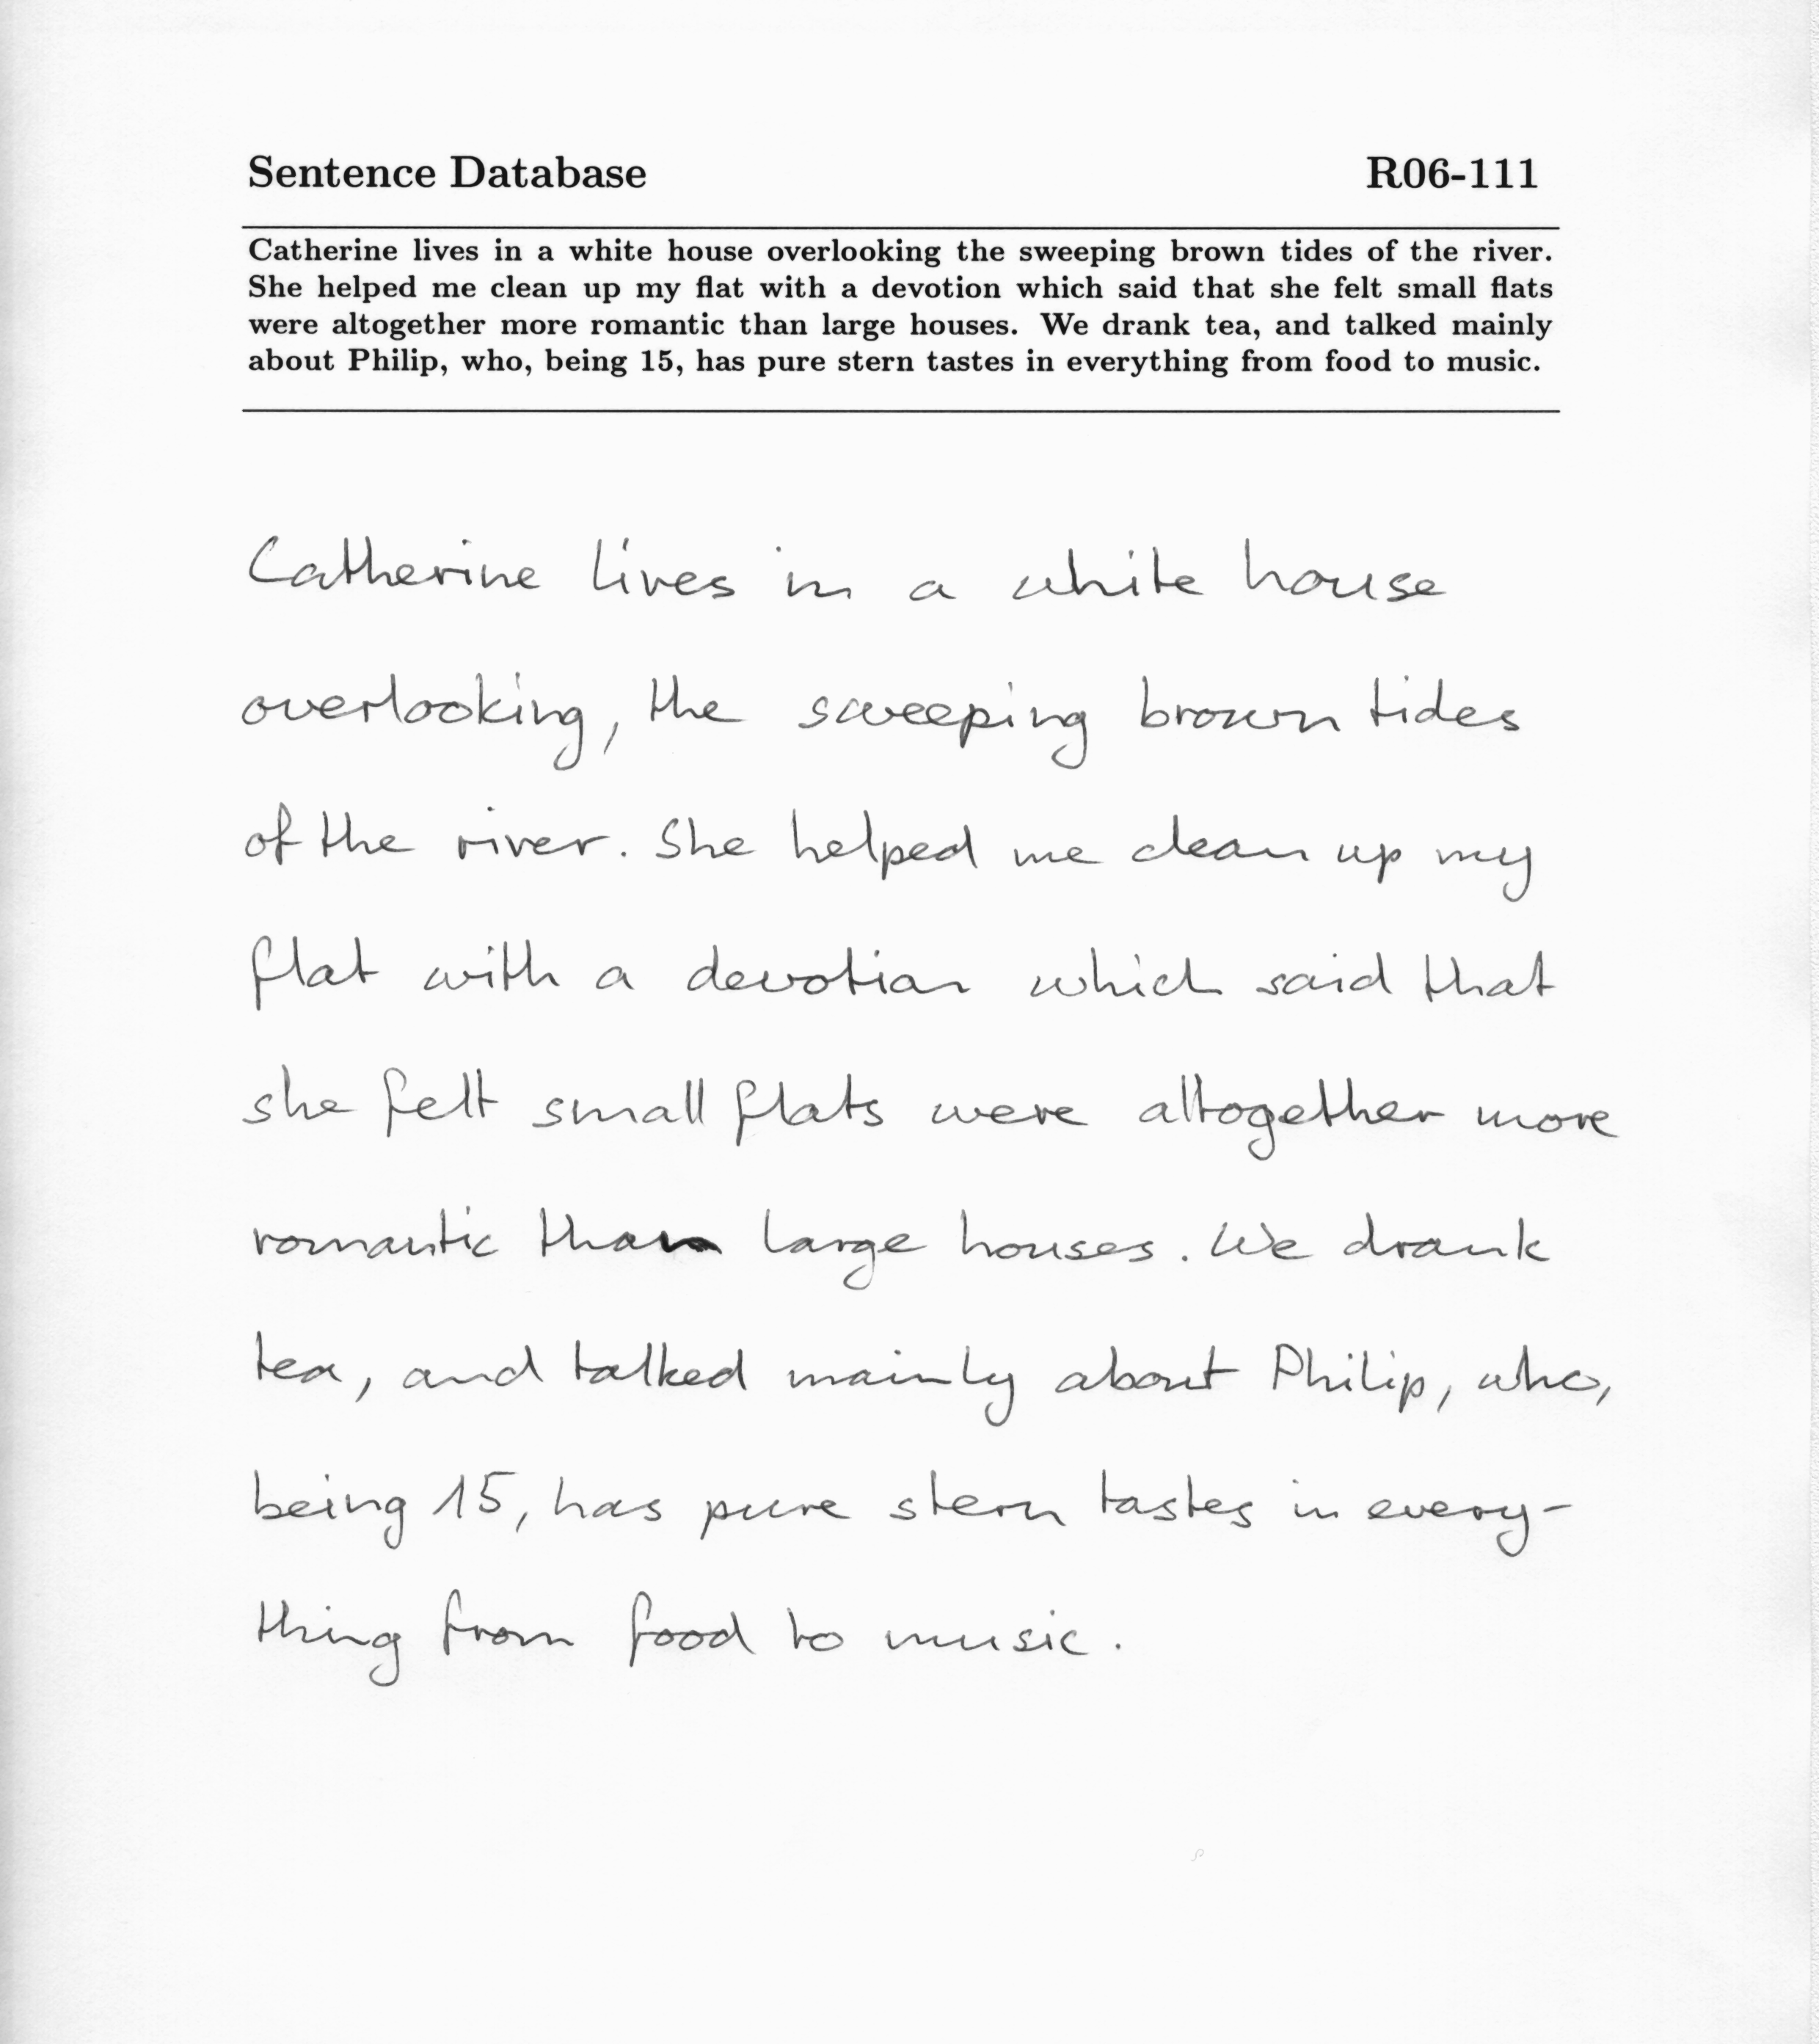 Sentence Database R06-111
Catherine lives in a white house overlooking the sweeping brown tides of the river.
She helped me clean up my flat with a devotion which said that she felt small flats
were altogether more romantic than large houses. We drank tea, and talked mainly
about Philip, who, being 15, has pure stern tastes in everything from food to music.
Catherine lives in a white house
overlooking, the sweeping brown tides
of the river. She helped me clean up my
flat with a devotion which said that
she felt small flats were altogether more
romantic than large houses. We drank
tea, and talked mainly about Philip, who,
being 15, has pure stern tastes in every-
thing from food to music.